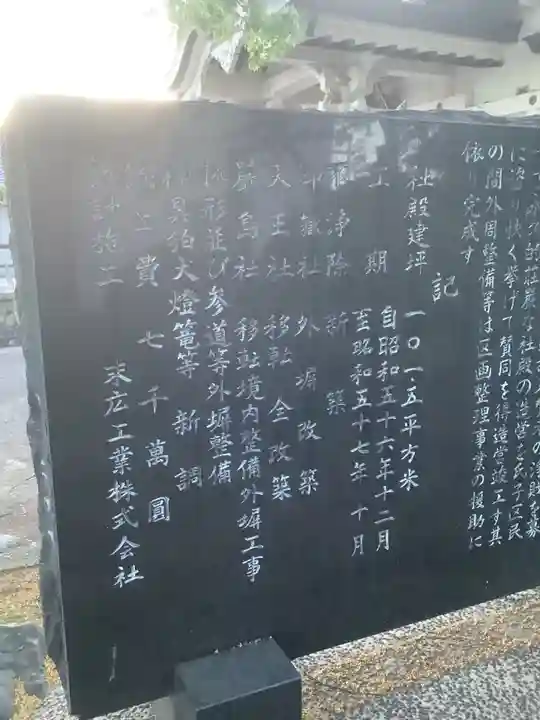 に諮り快く挙げて賛同を得造営竣工す其
の間外周整備等は区画整理事業の援助に
依り完成す
記
社殿建坪 一〇一・五平方米
工期 自昭和五十六年十二月
至昭和五十七年十月
浄除新築
御嶽社外塀改築
天王社移転全改築
厳島社移転境内整備外塀工事
並び参道等外塀整備
具狛犬燈篭等新調
工費七千萬圓
設計施工 末広工業株式会社